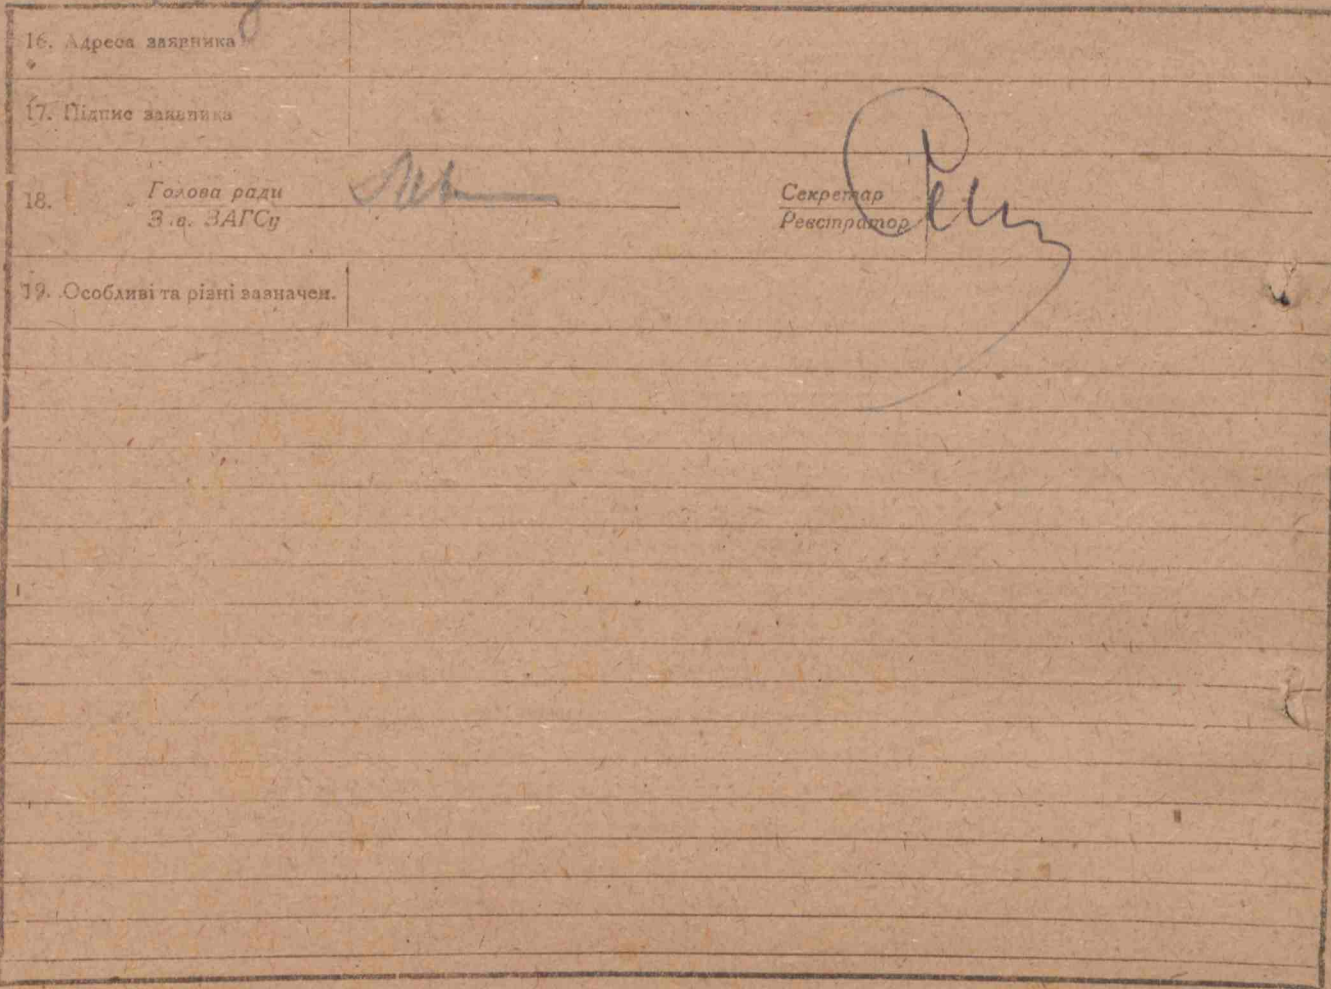 16. Адреса заявника
17. Підпис заявника
18. Голова ради Секретар
З.в. ЗАГСу Реєстратор
19. Особливі та різні зазначен.